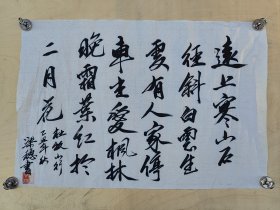 遠上寒山石
徑斜白雲生
處有人家停
車坐愛楓林
晚霜葉紅於
二月花
杜牧山行
年秋